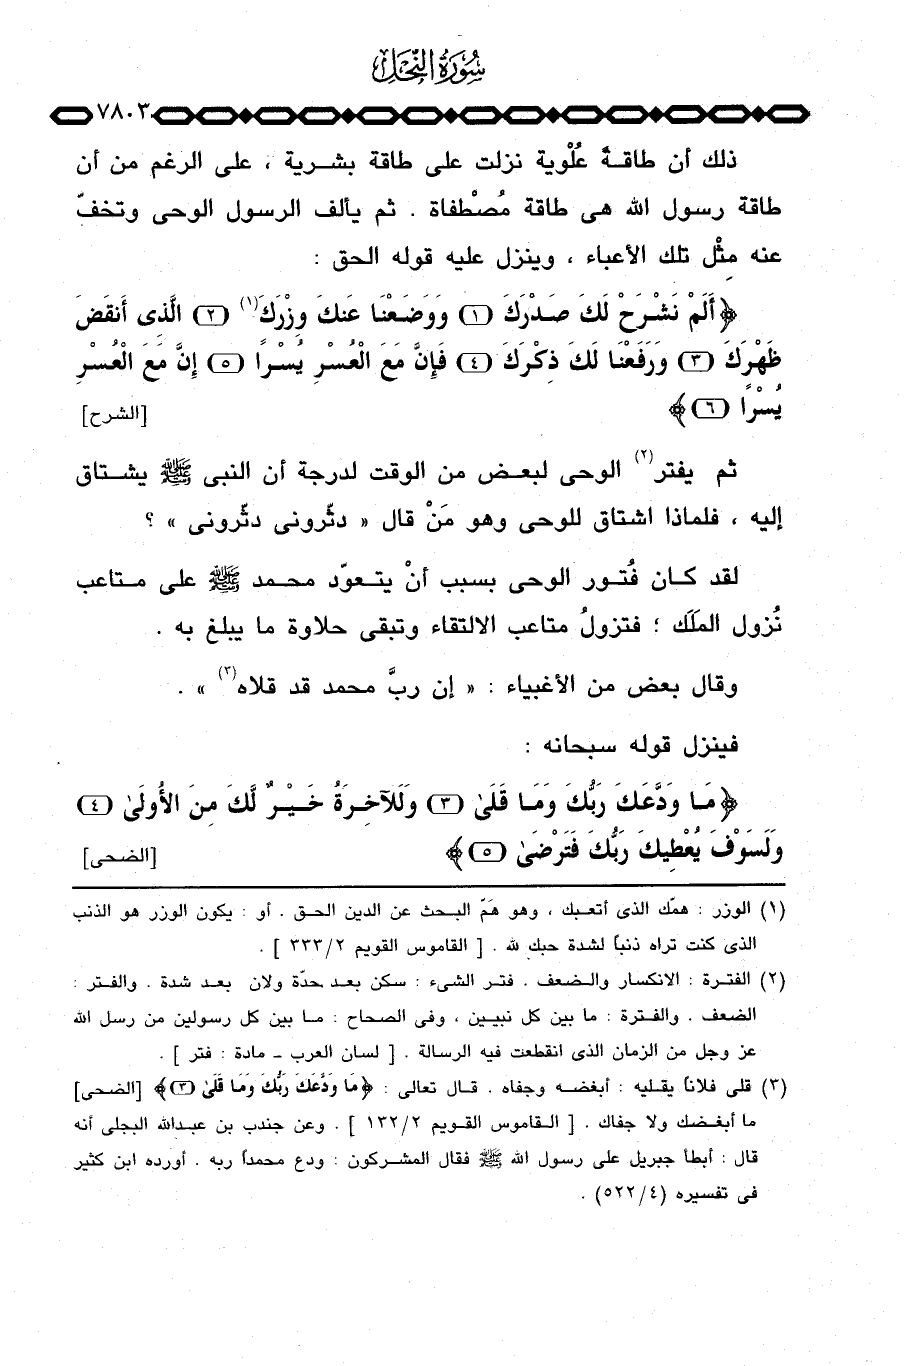 سُورَةُ النَّحْلِ
٧٨٠٣
ذلك أن طاقـةً عُلْوية نزلت على طاقة بشرية ، على الرغم من أن
طاقة رسول الله هى طاقة مُصْطفاة . ثم يألف الرسول الوحى وتخفّ
عنه مِثْل تلك الأعباء ، وينزل عليه قوله الحق :
﴿أَلَمْ نَشْرَحْ لَكَ صَدْرَكَ (١) وَوَضَعْنَا عَنكَ وِزْرَكَ(١) (٢) الَّذِى أَنقَضَ
ظَهْرَكَ (٣) وَرَفَعْنَا لَكَ ذِكْرَكَ (٤) فَإِنَّ مَعَ الْعُسْرِ يُسْرًا (٥) إِنَّ مَعَ الْعُسْرِ
يُسْرًا (٦)﴾ [الشرح]
ثم يفتر(٢) الوحى لبعض من الوقت لدرجة أن النبى ﷺ يشتاق
إليه ، فلماذا اشتاق للوحى وهو مَنْ قال « دثّرونى دثّرونى » ؟
لقد كان فُتور الوحى بسبب أنْ يتعوّد محمد ﷺ على متاعب
نُزول الملَك ؛ فتزولُ متاعب الالتقاء وتبقى حلاوة ما يبلغ به .
وقال بعض من الأغبياء : « إن ربَّ محمد قد قلاه(٣) » .
فينزل قوله سبحانه :
﴿مَا وَدَّعَكَ رَبُّكَ وَمَا قَلَىٰ (٣) وَلَلآخِرَةُ خَيْرٌ لَّكَ مِنَ الأُولَىٰ (٤)
وَلَسَوْفَ يُعْطِيكَ رَبُّكَ فَتَرْضَىٰ (٥)﴾ [الضحى]
(١) الوزر : همّك الذى أتعبك ، وهو هَمّ البحث عن الدين الحق . أو : يكون الوزر هو الذنب
الذى كنت تراه ذنباً لشدة حبك لله . [ القاموس القويم ٣٣٣/٢ ] .
(٢) الفترة : الانكسار والضعف . فتر الشىء : سكن بعد حدّة ولان بعد شدة . والفتر :
الضعف . والفترة : ما بين كل نبيين ، وفى الصحاح : ما بين كل رسولين من رسل الله
عز وجل من الزمان الذى انقطعت فيه الرسالة . [ لسان العرب - مادة : فتر ] .
(٣) قلى فلاناً يقليه : أبغضه وجفاه . قال تعالى : ﴿مَا وَدَّعَكَ رَبُّكَ وَمَا قَلَىٰ (٣)﴾ [الضحى]
ما أبغضك ولا جفاك . [ القاموس القويم ١٣٢/٢ ] . وعن جندب بن عبدالله البجلى أنه
قال : أبطأ جبريل على رسول الله ﷺ فقال المشركون : ودع محمداً ربه . أورده ابن كثير
فى تفسيره (٥٢٢/٤) .